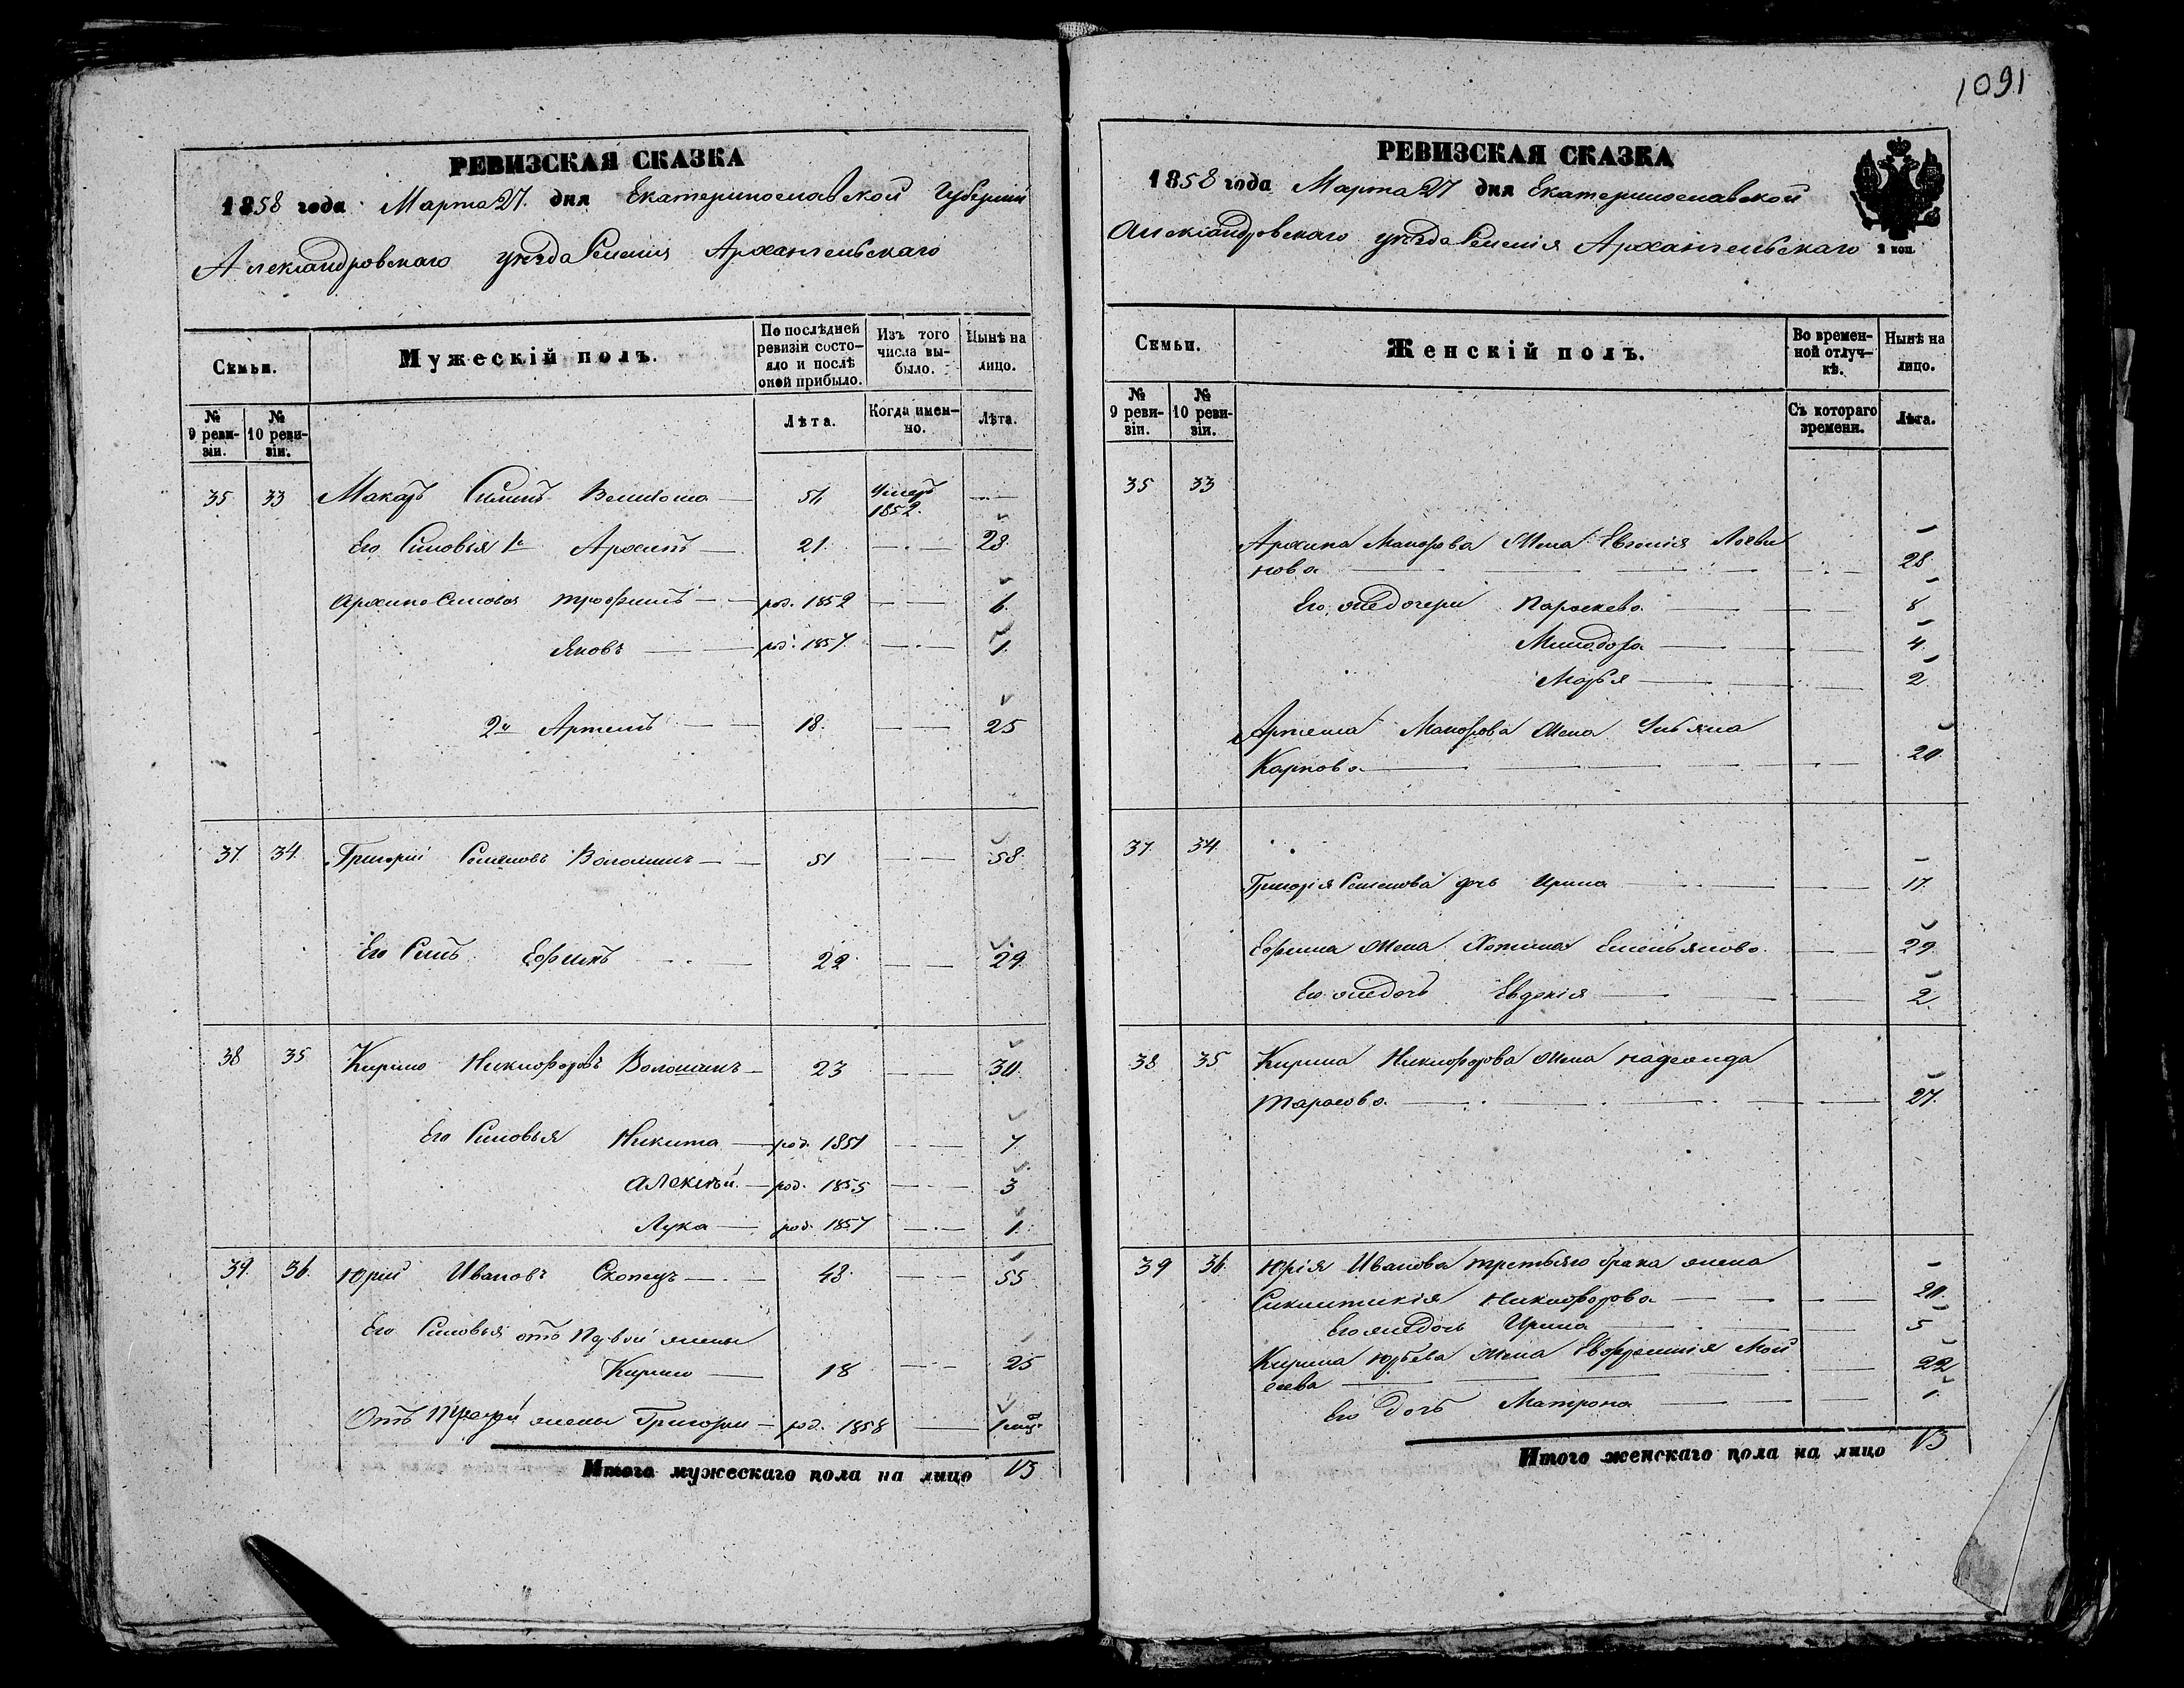 РЕВИЗСКАЯ СКАЗКА
1858 года Марта 27. дня Екатеринославской Губернии
Александровскаго уѣзда Селенія Архангельскаго
Семьи.
Мужескій полъ.
По послѣдней ревизіи состояло и послѣ оной прибыло.
Изъ того числа выбыло.
Нынѣ на лицо.
№ 9 ревизіи.
№ 10 ревизіи.
Лѣта.
Когда именно.
Лѣта.
35 33 Макаръ 51 Умеръ 1852.
Его Сыновья 1й Архипъ 21. 28.
Архипа Сыновья Трофимъ род. 1852 6.
Яковъ род. 1857. 1.
2й Артемъ 18. 25
37. 34. Григорій Семеновъ Волошинъ 51 58.
Его Сынъ Ефимъ 22 29.
38 35 Кирило Никифоровъ Волошинъ 23 30.
Его Сыновья Никита род. 1851 7.
Алексѣй род. 1855 3
Лука род. 1857 1.
39. 36. Юрій Ивановъ Скопецъ 48. 55
Его Сыновья отъ Первой жены
Кирило 18 25
Отъ жены Григорій род. 1858 1 мѣц.
Итого мужескаго пола на лицо 13
1091
РЕВИЗСКАЯ СКАЗКА
1858 года Марта 27 дня Екатеринославской
Александровскаго уѣзда Селенія Архангельскаго
2 коп.
Семьи.
Женскій полъ.
Во временной отлучкѣ.
Нынѣ на лицо.
№ 9 ревизіи.
№ 10 ревизіи.
Съ котораго времени.
Лѣта.
35 33
Архипа Макарова Жена Евгенія Логви
нова 28.
Его же дочери Параскева 8
Минодора 4.
Марья 2.
Артема Макарова Жена Ульяна
Карпова 20.
37. 34.
Григорія Семенова дочь Ирина 17.
Ефима Жена Хотина Емельянова 29.
Его же дочь Евдокія 2.
38 35 Кирила Никифорова Жена
Тарасова 27.
39 36. Юрія Иванова третьяго брака жена
Синклитикія Никифорова 20.
Его же дочь Ирина 5
Кирила Юрьева Жена Евфросинія Мои
сеева 22
Его дочь Матрона 1.
Итого женскаго пола на лицо 13